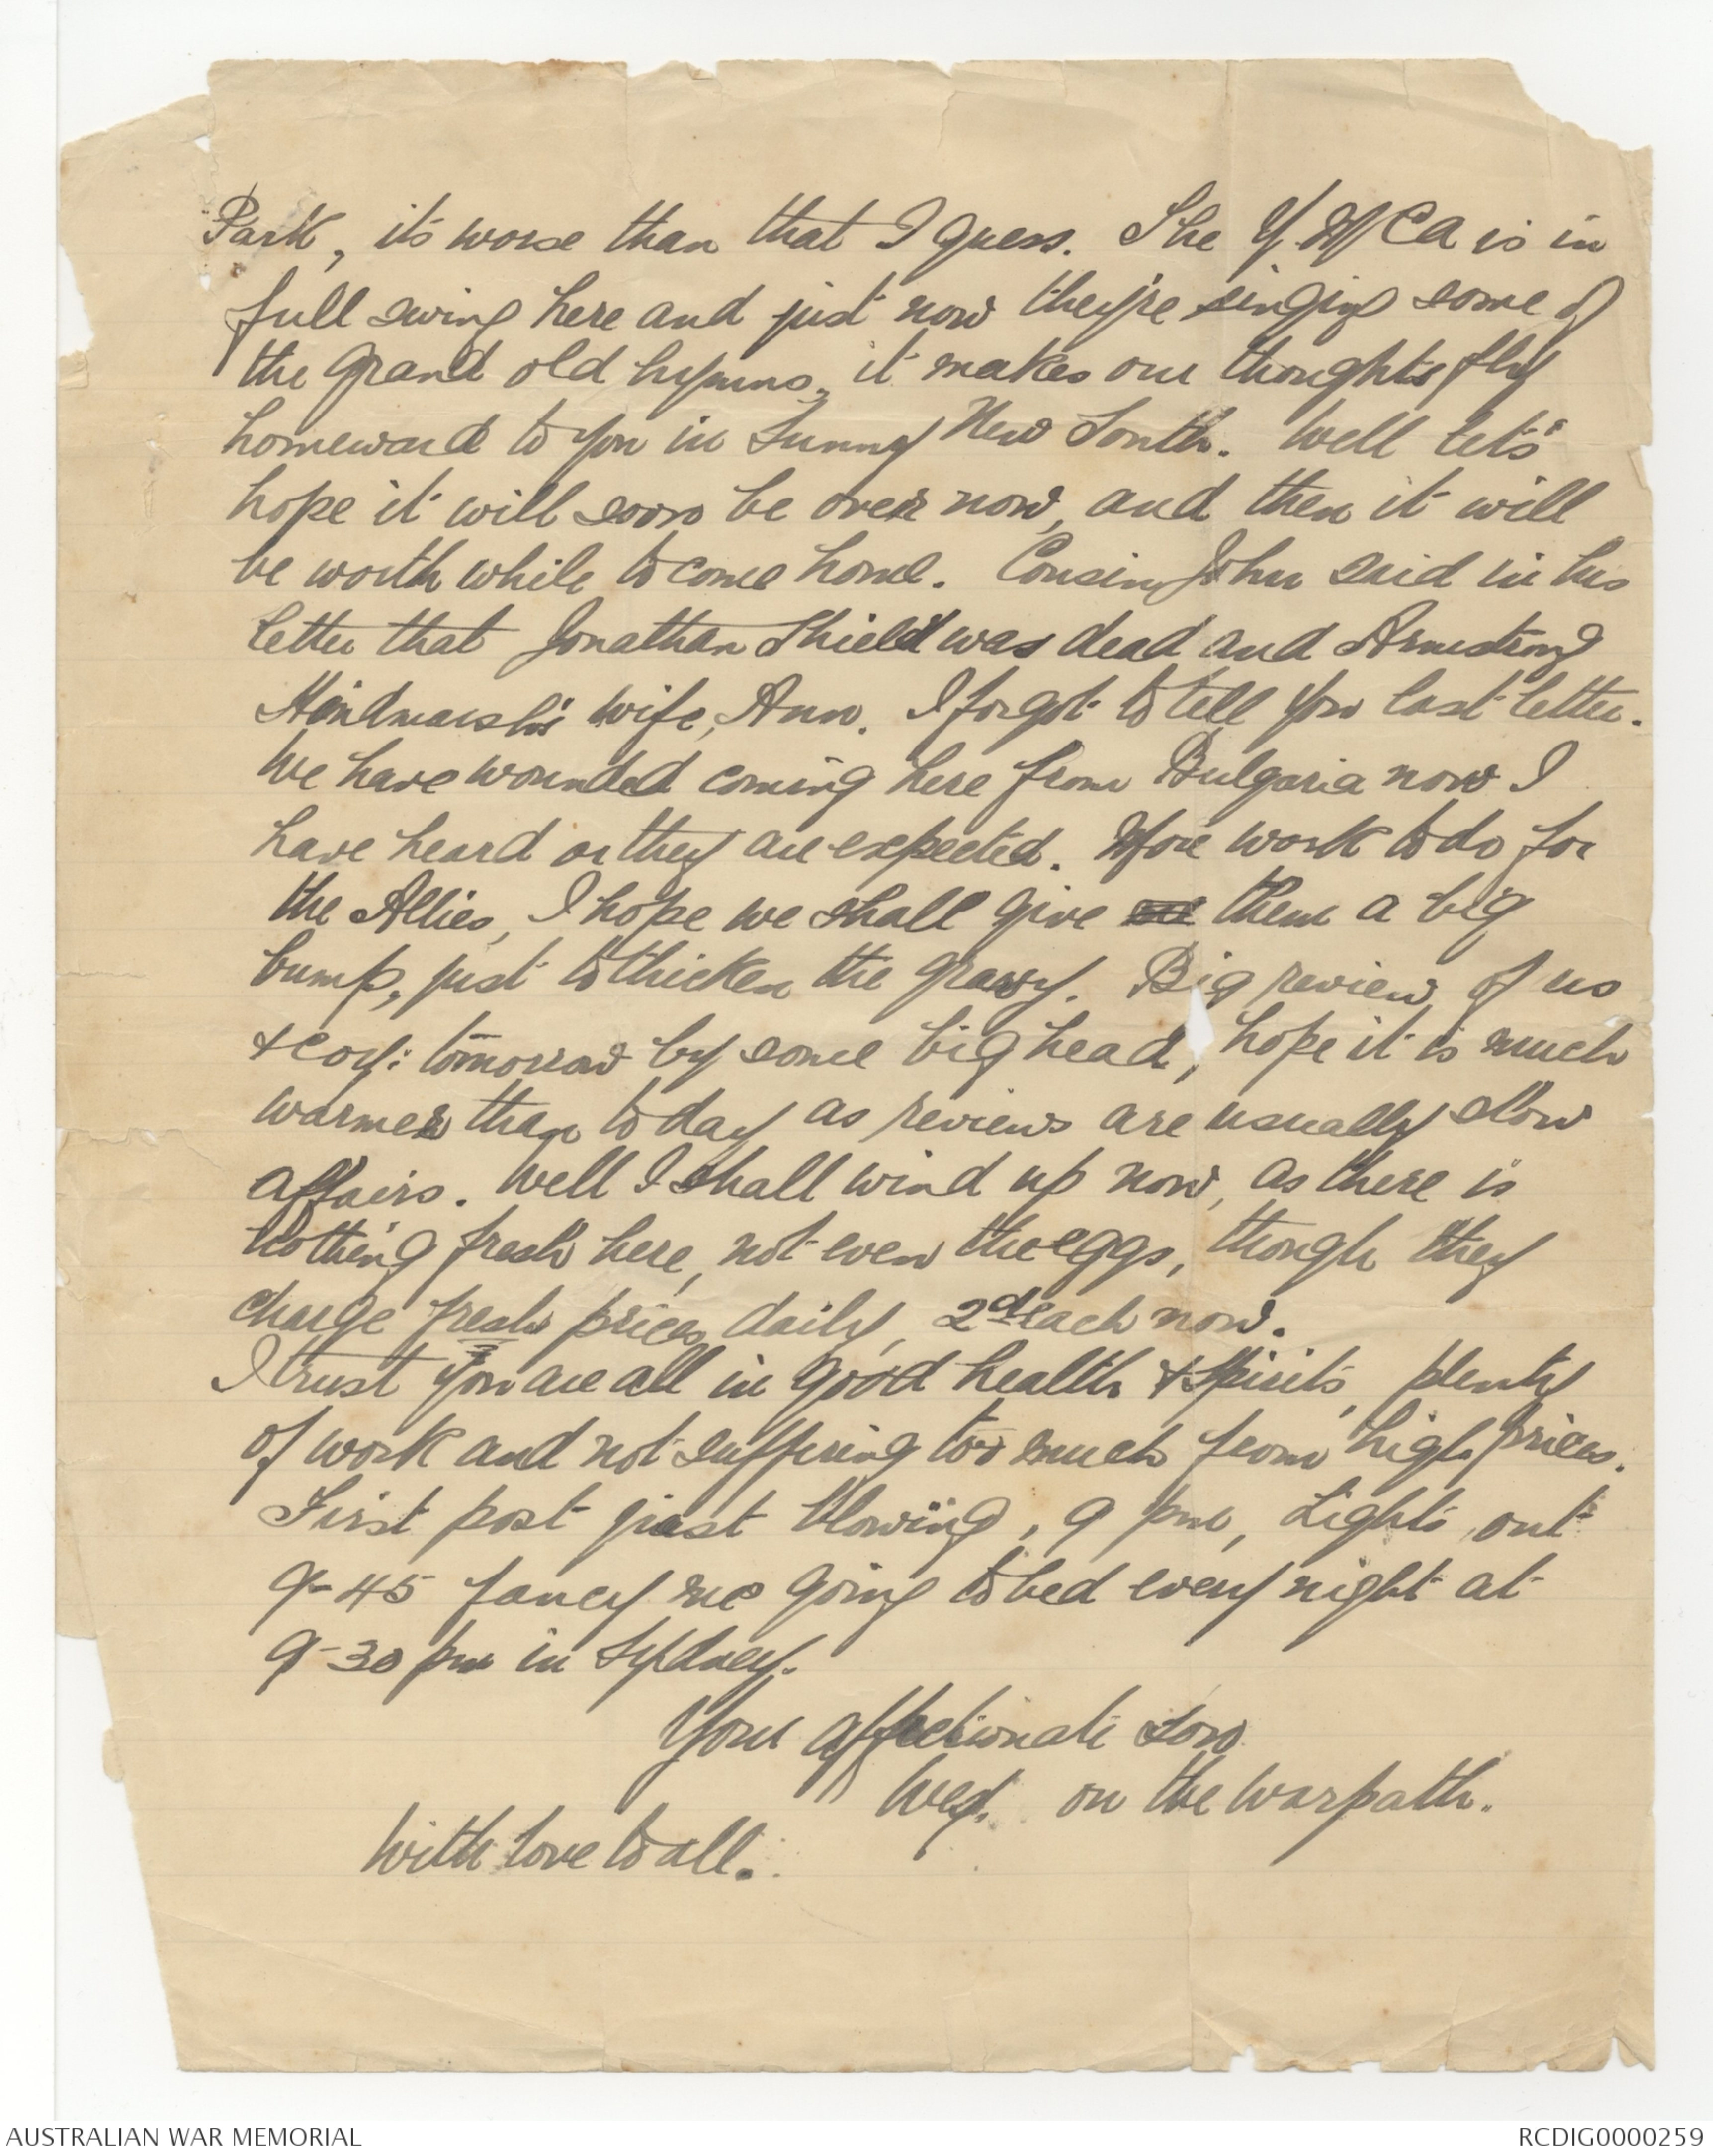 Park, it's worse than that I guess. The Y.M.C.A is in
full swing here and just now they're singing some of
the grand old hymns, it makes our thoughts fly
homeward to you in Sunny New South. Well let's
hope it will soon be over now, and then it will
be worth while to come home. Cousin John said in his
letter that Jonathan Shield was dead and Armstrong
Hindmarsh's wife, Ann. I forgot to tell you last letter.
We have wounded coming here from Bulgaria now I
have heard or they are expected. More work to do for
the Allies, I hope we shall give them a big
bump, just to thicken the gravy. Big review of us
& coy: tomorrow by some big head, hope it is much
warmer than today as reviews are usually slow
affairs. Well I shall wind up now, as there is
nothing fresh here, not even the eggs, though they
charge fresh prices daily, 2d each now.
I trust you are all in good health & spirits, plenty
of work and not suffering too much from high prices.
First post just blowing, 9 pm, Lights out
9-45 fancy me going to bed every night at
9-30 pm in Sydney.
Your affectionate son
on the warpath.
With love to all.
AUSTRALIAN WAR MEMORIAL
RCDIG0000259